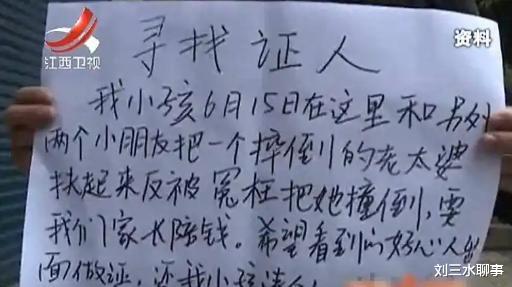 江西卫视
资料
寻找证人
我小孩6月15日在这里和另外
两个小朋友把一个摔倒的老太婆
扶起来反被冤枉把她撞倒,要
我们家长陪钱。希望看到的好心人出
面做证,还我小孩清白
刘三水聊事